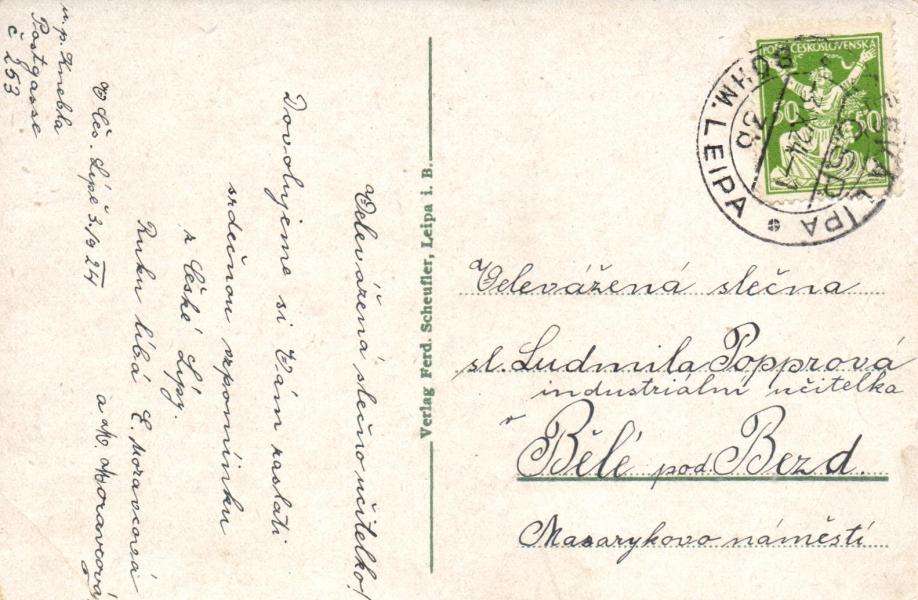 Velevážená slečno učitelko!
Dovolujeme si Vám zaslati
srdečnou vzpomínku
z České Lípy.
Ruku líbá E. Moravcová
a M. Moravcová
V Čes. Lípě 2./9 24
u. p. Knebla
Postgasse
č 253
Verlag Ferd. Scheufler, Leipa i. B.
POŠTA ČESKOSLOVENSKÁ
50 50
ČESKÁ LIPA
BÖHM. LEIPA
Velevážená slečna
sl. Ludmila Popprová
industrialní učitelka
v Bělé pod Bezd.
Masarykovo náměstí